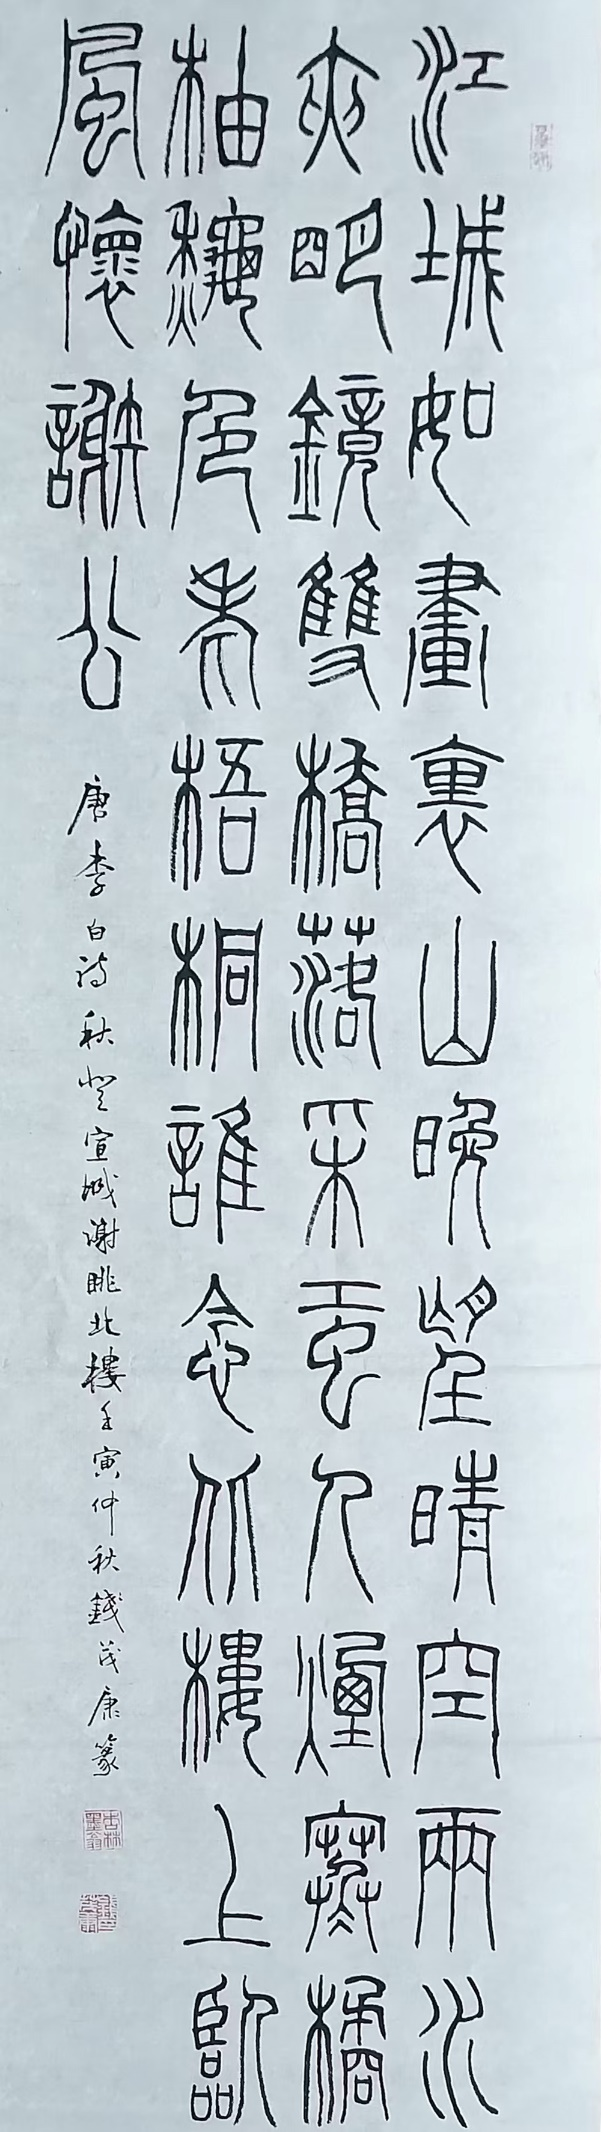 江城如畫裏山晚望晴空兩水
夾明鏡雙橋落采虹人煙寒橘
柚秋色老梧桐誰念北樓上臨
風懷謝公
唐李白詩秋登宣城謝眺北樓壬寅仲秋錢茂康篆
杏林墨翁